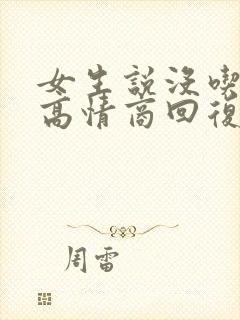 女生説没喫
高情商回復
周雷